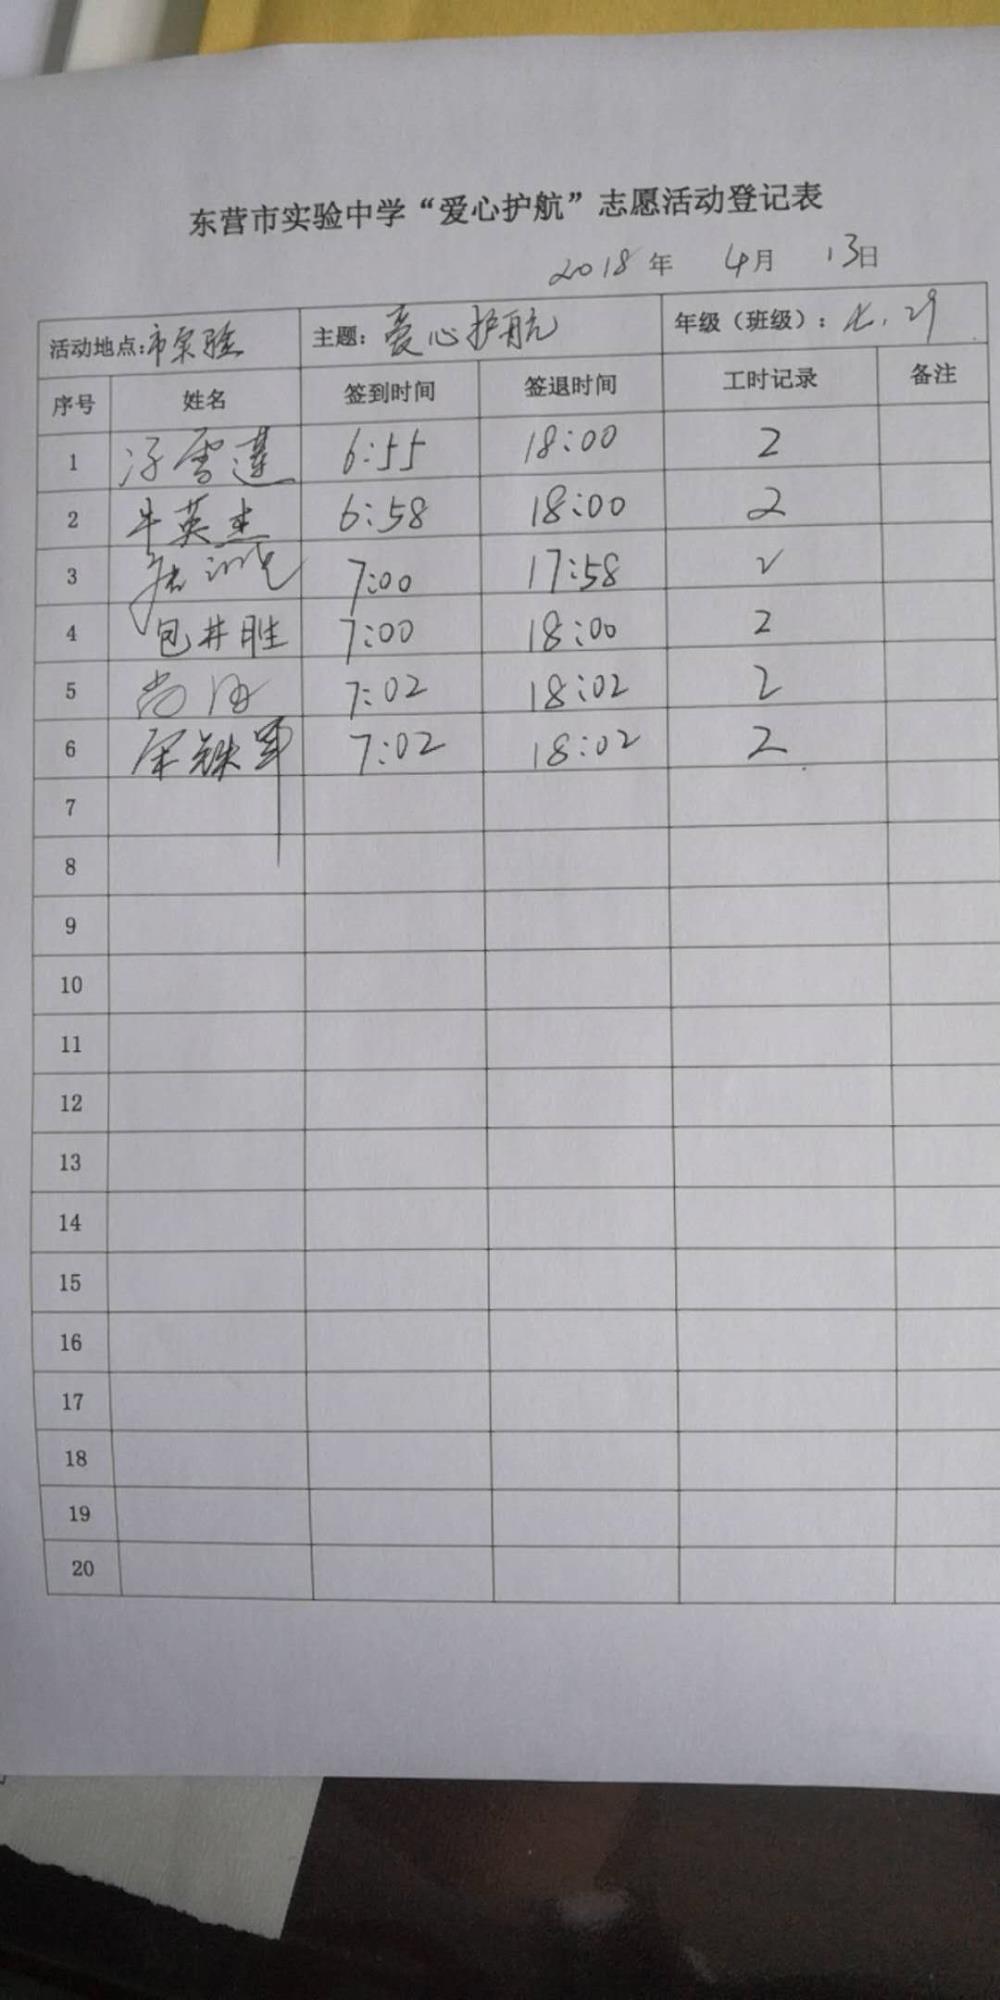 东营市实验中学“爱心护航”志愿活动登记表
2018年 4月 13日
活动地点:市实验 主题: 爱心护航 年级(班级): 七.29
序号 姓名 签到时间 签退时间 工时记录 备注
1 冯雪莲 6:55 18:00 2
2 牛英杰 6:58 18:00 2
3 7:00 17:58 2
4 包井胜 7:00 18:00 2
5 尚 7:02 18:02 2
6 宋铁军 7:02 18:02 2
7
8
9
10
11
12
13
14
15
16
17
18
19
20